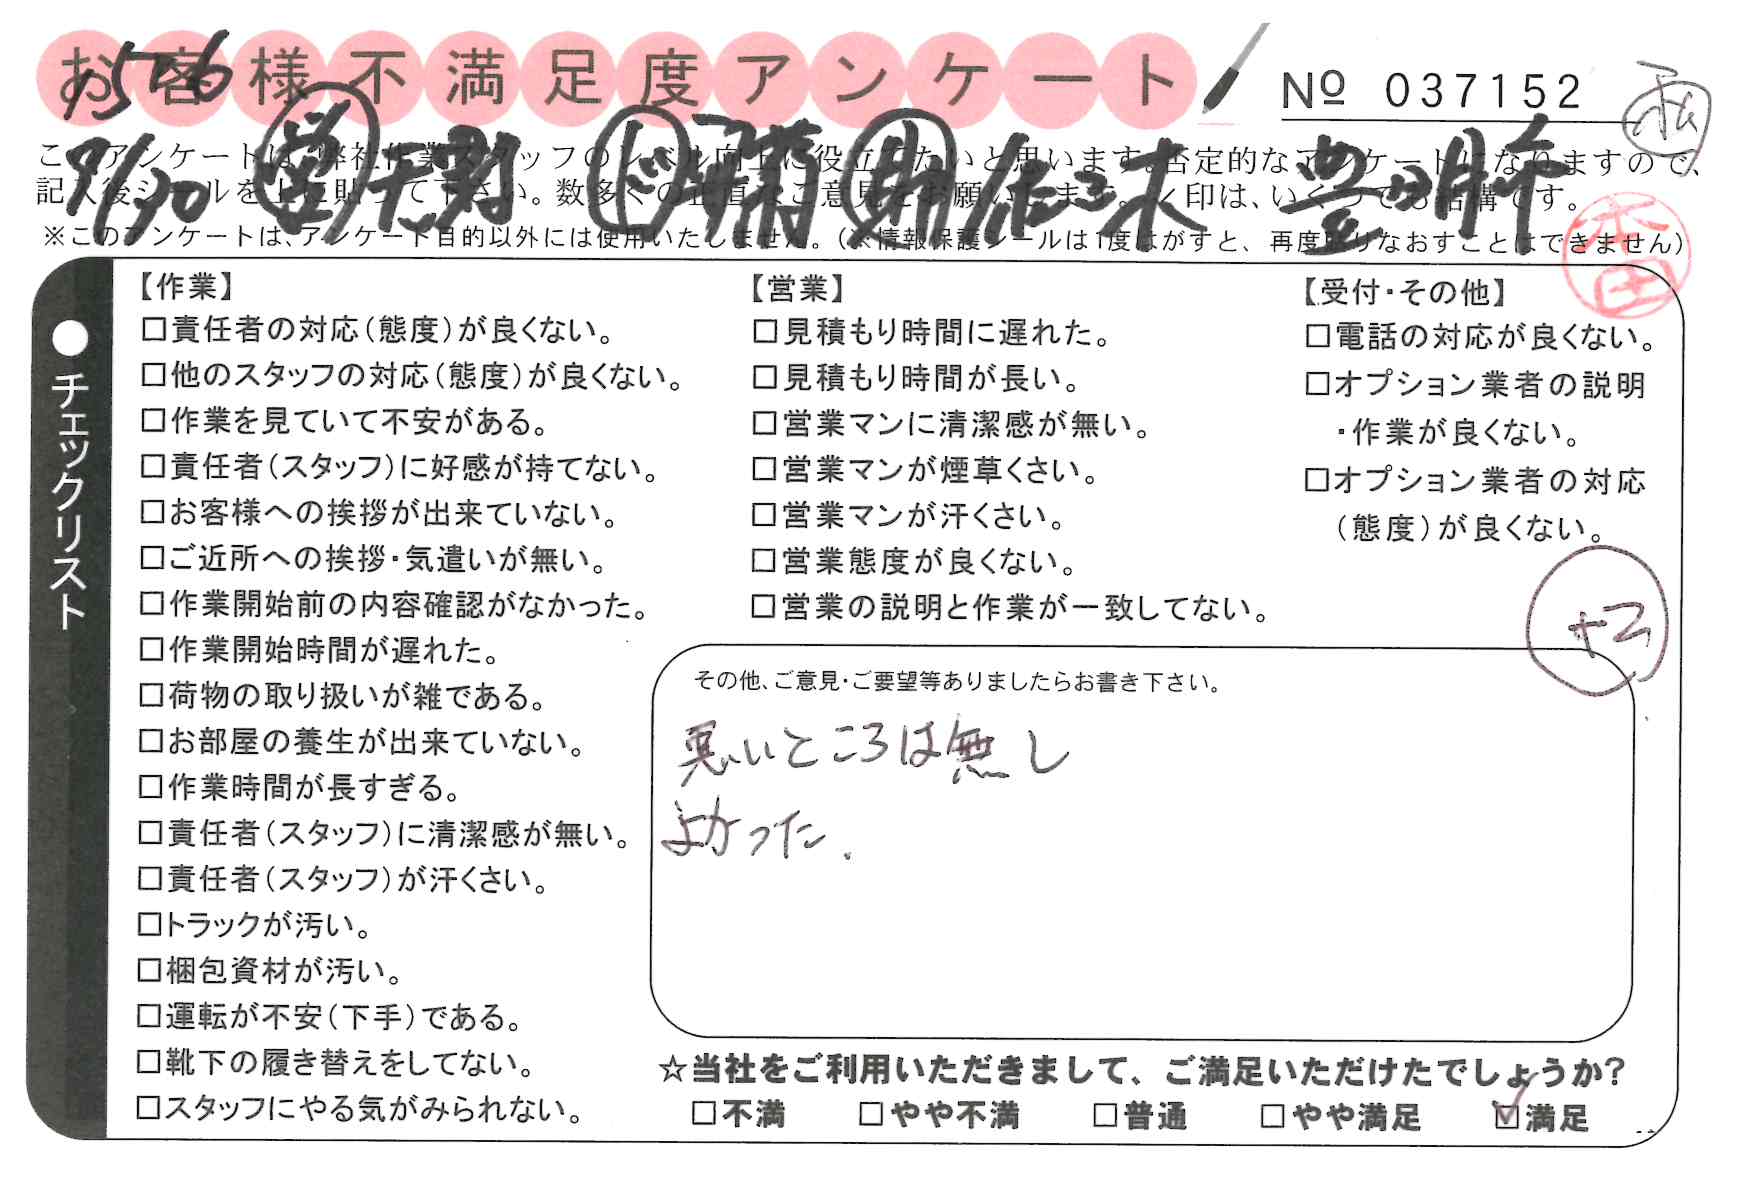 お客様不満足度アンケート
1576
№ 037152
このアンケートは、弊社作業スタッフのレベル向上に役立てたいと思います。否定的なアンケートになりますので、
記入後シールを上に貼って下さい。数多くの正直なご意見をお願いします。✓印は、いくつでも結構です。
※このアンケートは、アンケート目的以外には使用いたしません。(※情報保護シールは1度はがすと、再度貼りなおすことはできません)
9/30
佐々木
豊明
本田
●チェックリスト
【作業】
□責任者の対応(態度)が良くない。
□他のスタッフの対応(態度)が良くない。
□作業を見ていて不安がある。
□責任者(スタッフ)に好感が持てない。
□お客様への挨拶が出来ていない。
□ご近所への挨拶・気遣いが無い。
□作業開始前の内容確認がなかった。
□作業開始時間が遅れた。
□荷物の取り扱いが雑である。
□お部屋の養生が出来ていない。
□作業時間が長すぎる。
□責任者(スタッフ)に清潔感が無い。
□責任者(スタッフ)が汗くさい。
□トラックが汚い。
□梱包資材が汚い。
□運転が不安(下手)である。
□靴下の履き替えをしてない。
□スタッフにやる気がみられない。
【営業】
□見積もり時間に遅れた。
□見積もり時間が長い。
□営業マンに清潔感が無い。
□営業マンが煙草くさい。
□営業マンが汗くさい。
□営業態度が良くない。
□営業の説明と作業が一致してない。
【受付・その他】
□電話の対応が良くない。
□オプション業者の説明
・作業が良くない。
□オプション業者の対応
(態度)が良くない。
+3
その他、ご意見・ご要望等ありましたらお書き下さい。
悪いところは無し
よかった.
☆当社をご利用いただきまして、ご満足いただけたでしょうか?
□不満 □やや不満 □普通 □やや満足 ☑満足